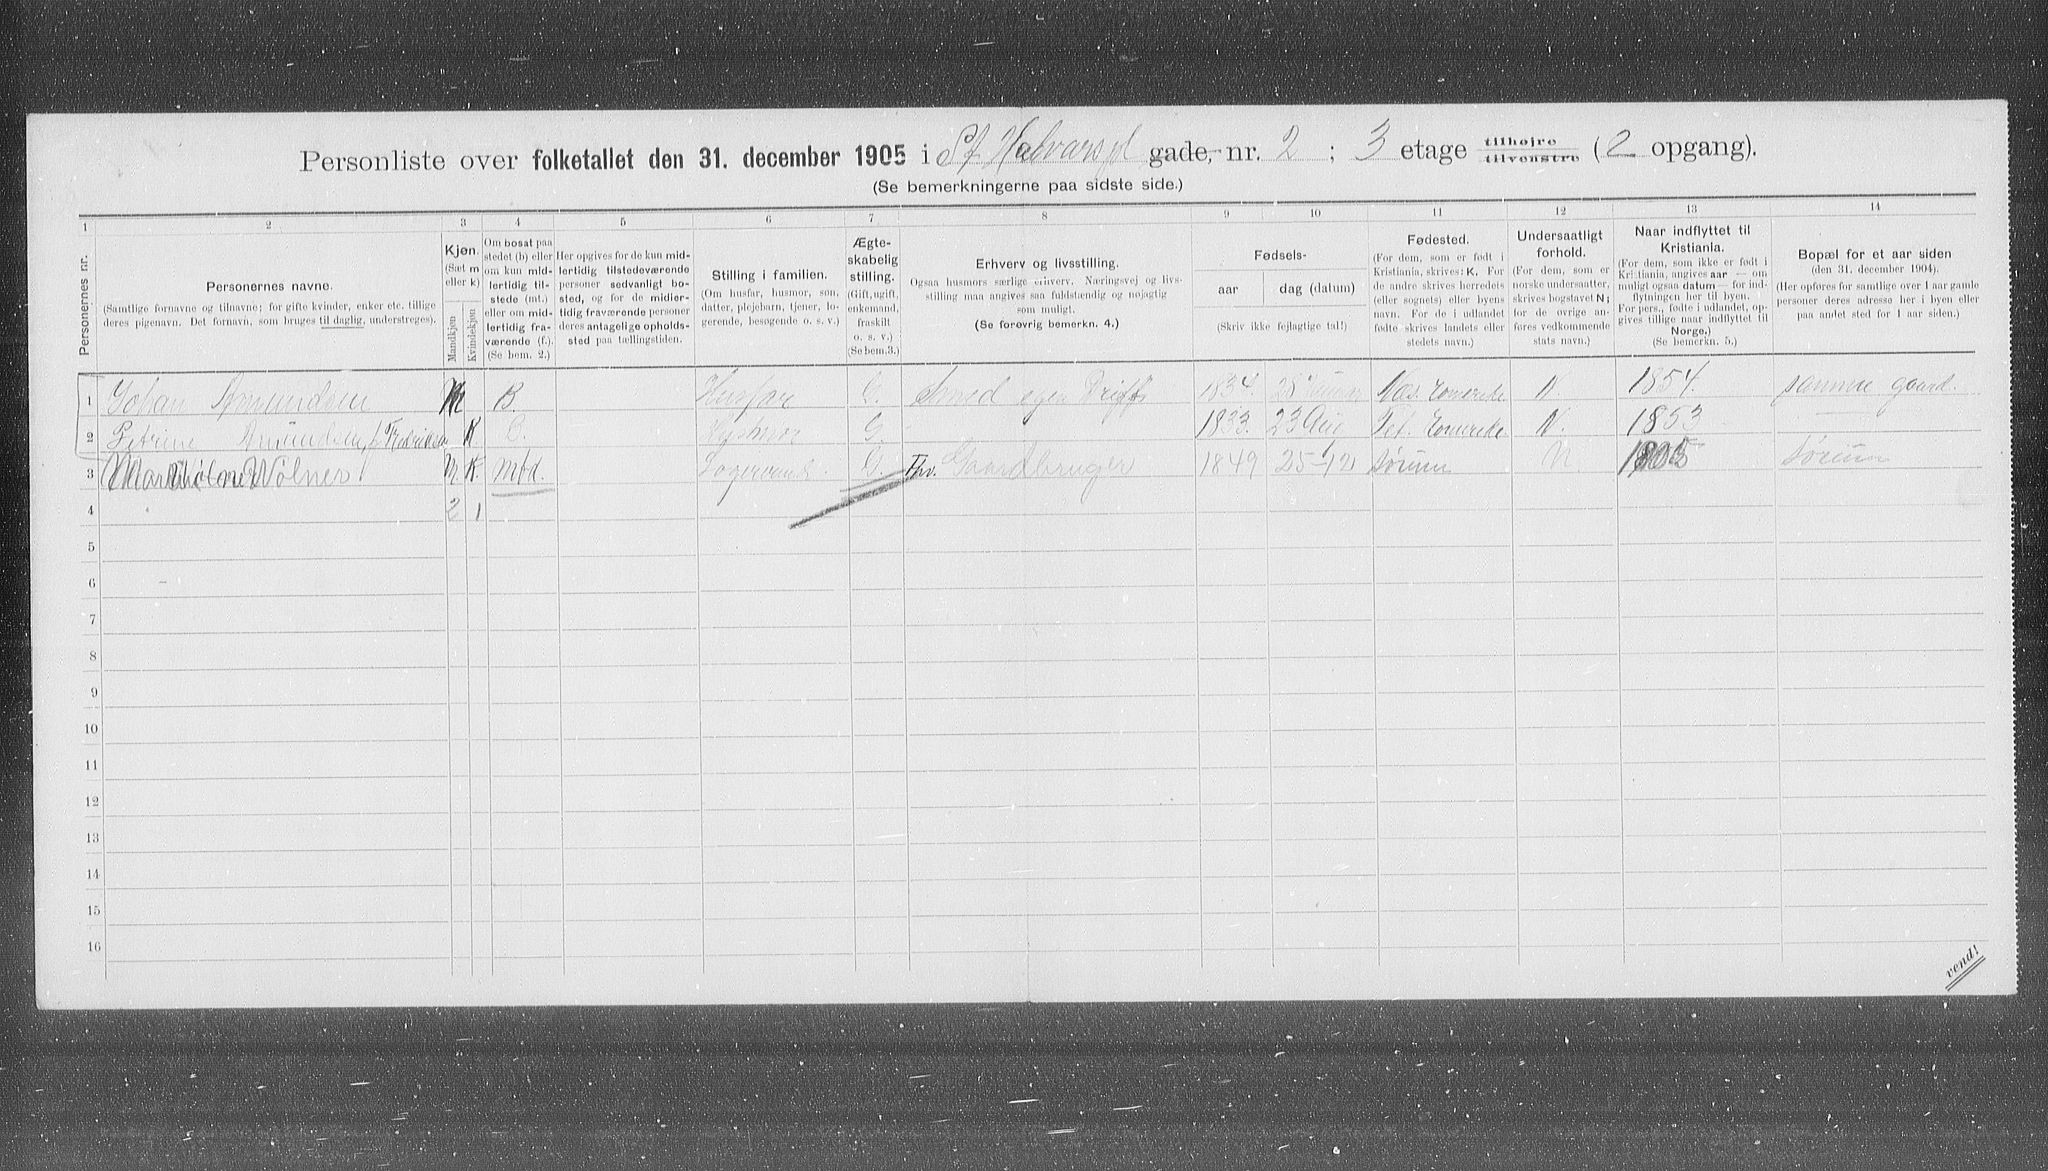 Personliste over folketallet den 31. december 1905 i St Halvarspl gade, nr. 2 ; 3 etage tilhøjre tilvenstre (2 opgang).
(Se bemerkningerne paa sidste side.)
1 2 3 4 5 6 7 8 9 10 11 12 13 14
Personernes nr.
Personernes navne.
(Samtlige fornavne og tilnavne; for gifte kvinder, enker etc. tillige
deres pigenavn. Det fornavn, som bruges til daglig, understreges).
Kjøn.
(Sæt m
eller k)
Mandkjøn
Kvindekjøn
Om bosat paa
stedet (b) eller
om kun mid-
lertidig til-
stede (mt.)
eller om mid-
lertidig fra-
værende (f.).
(Se bem. 2.)
Her opgives for de kun mid-
lertidig tilstedeværende
personer sedvanligt bo-
sted, og for de midler-
tidig fraværende personer
deres antagelige opholds-
sted paa tællingstiden.
Stilling i familien.
(Om husfar, husmor, søn,
datter, plejebarn, tjener, lo-
gerende, besøgende o. s. v.)
Ægte-
skabelig
stilling.
(Gift, ugift,
enkemand,
fraskilt
o. s. v.)
(Se bem.3.)
Erhverv og livsstilling.
Ogsaa husmors særlige erhverv. Næringsvej og livs-
stilling maa angives saa fuldstændig og nøjagtig
som muligt.
(Se forøvrig bemerkn. 4.)
Fødsels-
aar dag (datum)
(Skriv ikke fejlagtige tal!)
Fødested.
(For dem, som er født i
Kristiania, skrives: K. For
de andre skrives herredets
(eller sognets) eller byens
navn. For de i udlandet
fødte skrives landets eller
stedets navn.)
Undersaatligt
forhold.
(For dem, som er
norske undersaatter,
skrives bogstavet N;
for de øvrige an-
føres vedkommende
stats navn.)
Naar indflyttet til
Kristiania.
(For dem, som ikke er født i
Kristiania, angives aar — om
muligt ogsaa datum — for ind-
flytningen her til byen.
For pers., fødte i udlandet, op-
gives tillige naar indflyttet til
Norge.)
(Se bemerkn. 5.)
Bopæl for et aar siden
(den 31. december 1904).
(Her opføres for samtlige over 1 aar gamle
personer deres adresse her i byen eller
paa andet sted for 1 aar siden.)
1 Johan Amundsen M B. Husfar G. Smed egen Drift 1834. 28 Næs. Romerike N. 1854. samme gaard
2 Petrine Amundsen f. Fredriksen K. B. Husmor G. 1833. 23 Aug Fet. Romerike N. 1853
3 Wølner M. K. mtd. Logerende G. Fhv. Gaardbruger 1849 25-12 Sørum N. 1905 Sørum
4 2 1
5
6
7
8
9
10
11
12
13
14
15
16
vend!